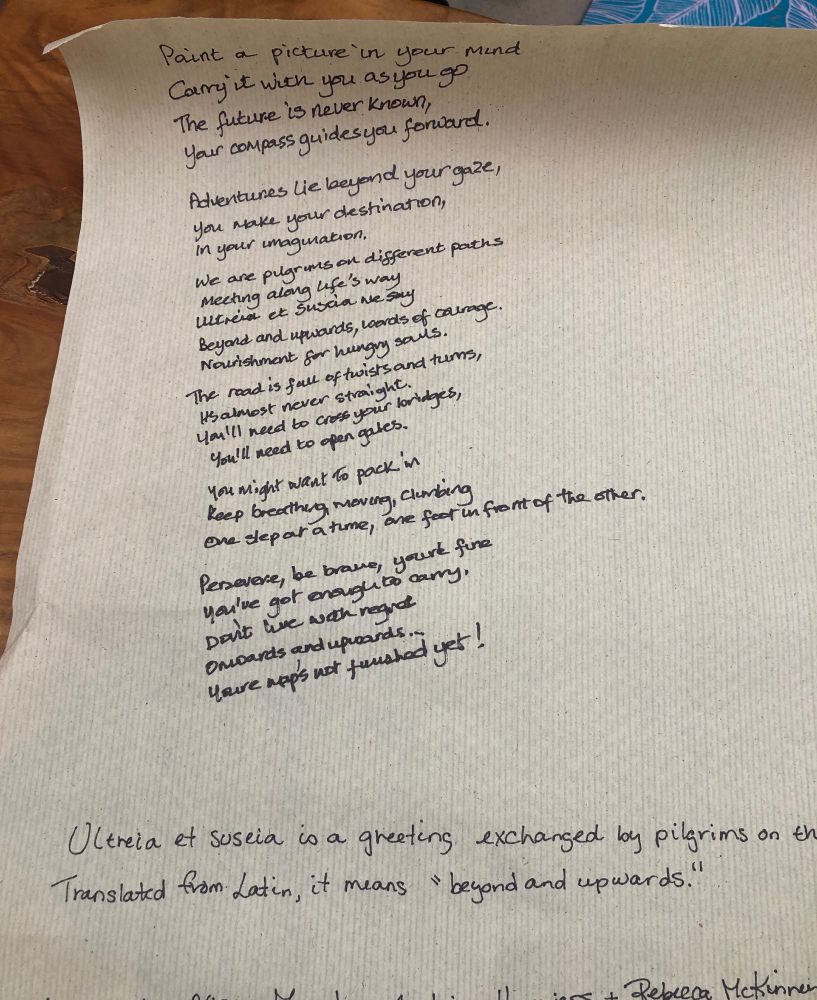 Paint a picture in your mind
Carry it with you as you go
The future is never known,
Your compass guides you forward.
Adventures lie beyond your gaze,
You make your destination,
In your imagination.
We are pilgrims on different paths
Meeting along life's way
Ultreia et Suseia we say
Beyond and upwards, words of courage.
Nourishment for hungry souls.
The road is full of twists and turns,
Its almost never straight.
You'll need to cross your bridges,
You'll need to open gates.
You might want to pack in
Keep breathing, moving, climbing
One step at a time, one foot in front of the other.
Persevere, be brave, you're fine
You've got enough to carry,
Don't live with regret
Onwards and upwards...
Youre map's not finished yet!
Ultreia et suseia is a greeting exchanged by pilgrims on th
Translated from Latin, it means "beyond and upwards."
+ Rebecca McKinne